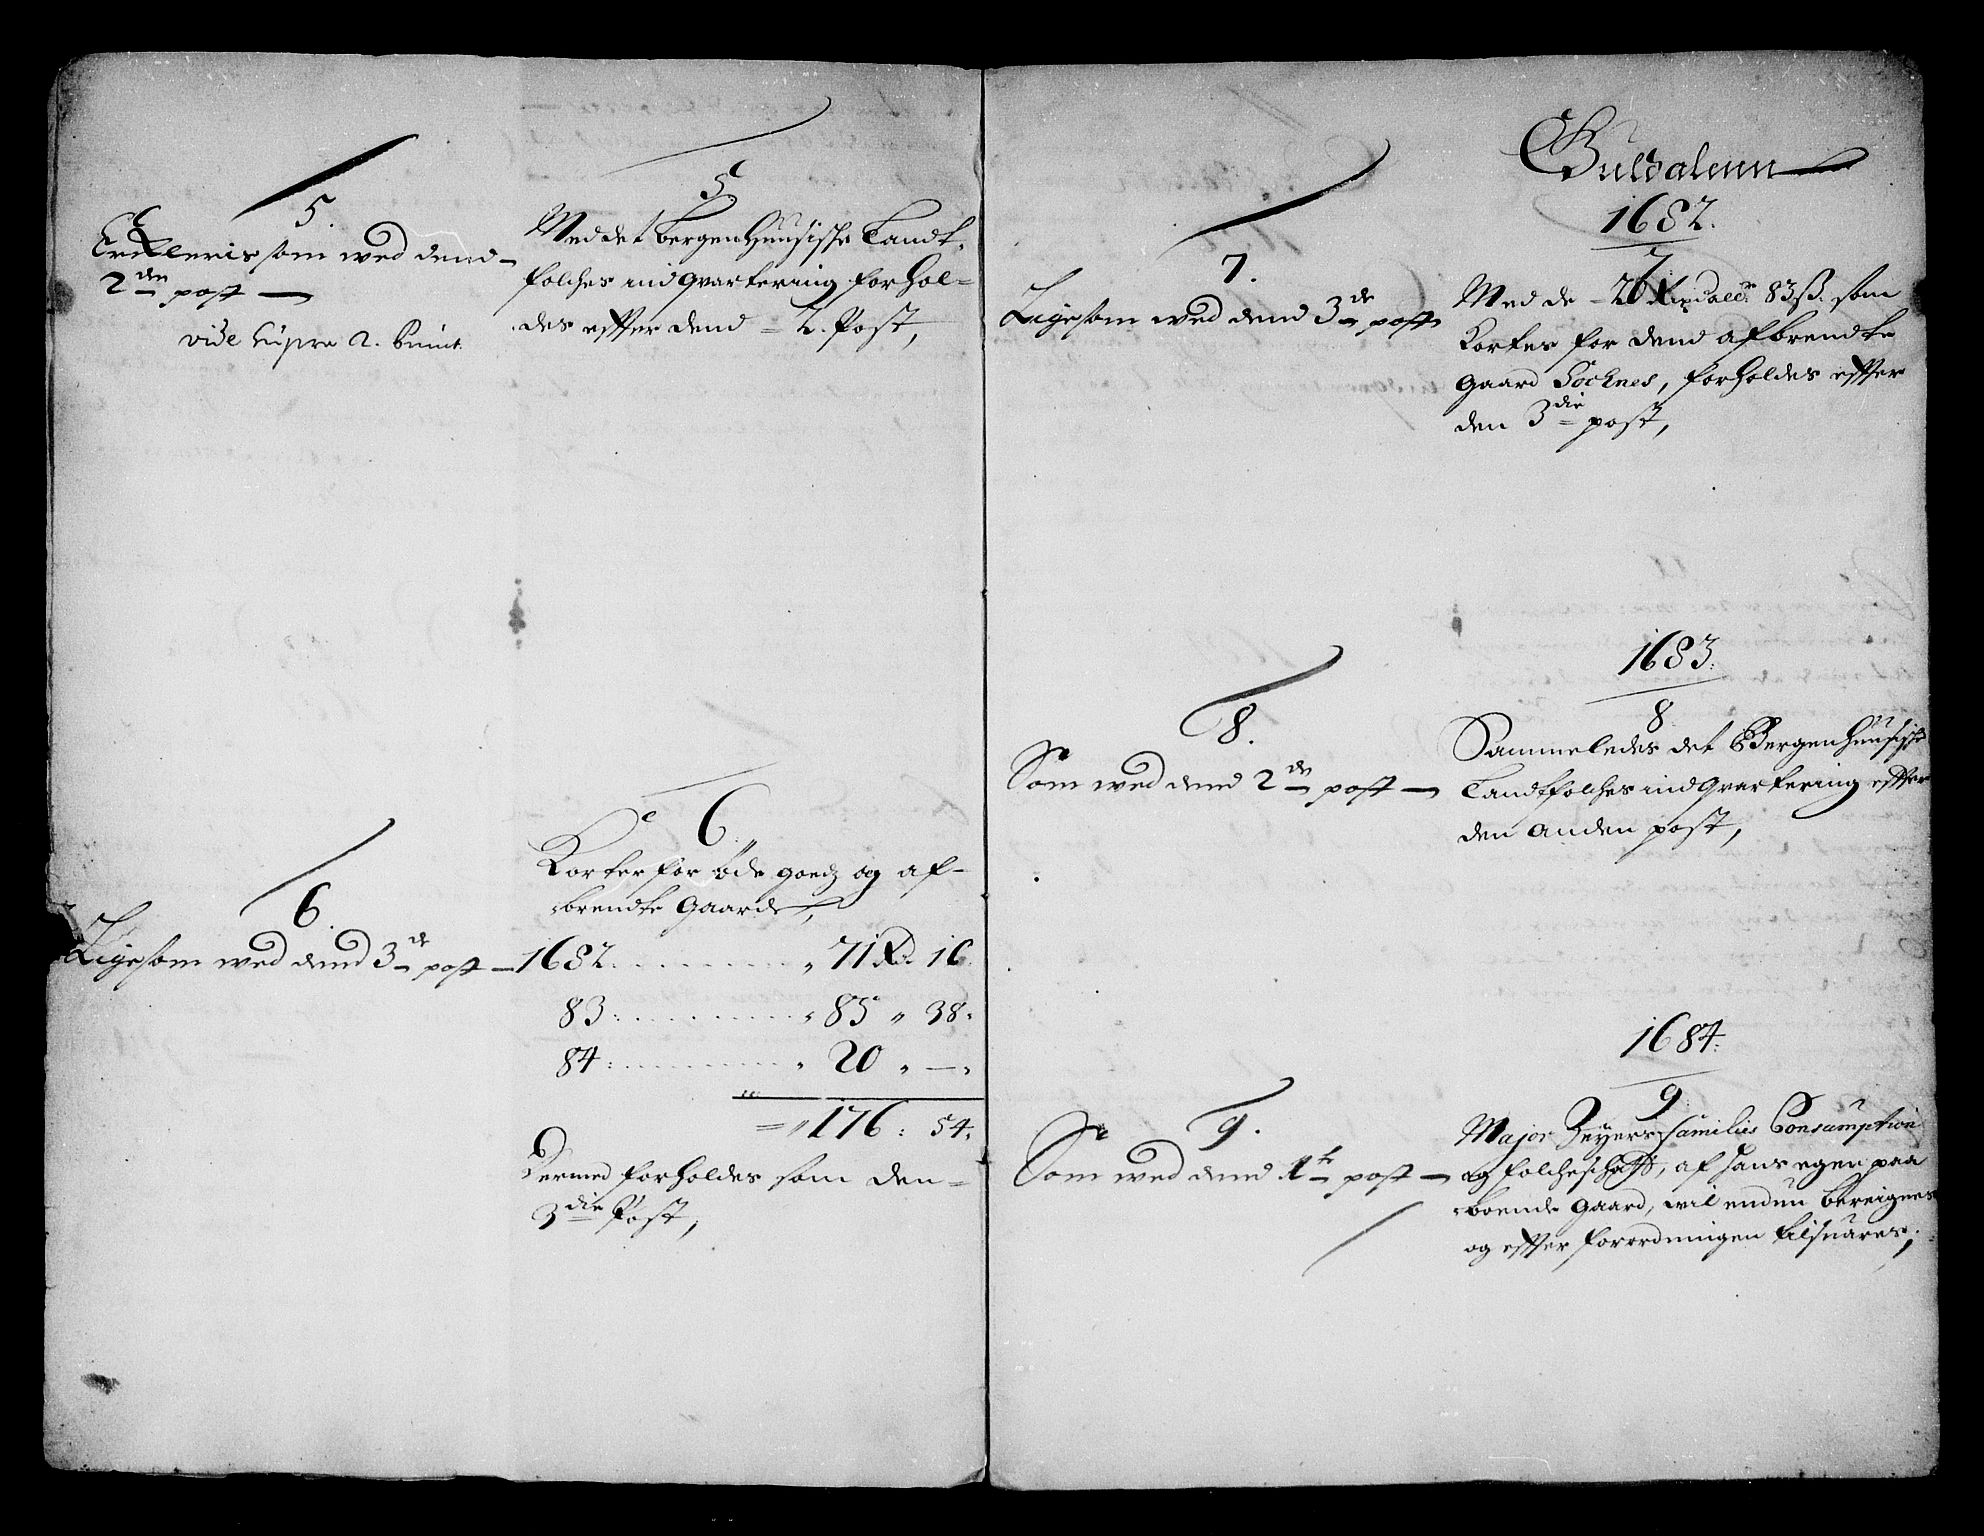 5.
Erkleris som wed dend
2de post —
vide supra 2. Punct.
5
Med det Bergenhuusische Landt-
folches indqvartering forhol-
des effter dend = 2. Post,
6.
Ligesom wed dend 3de post —
6.
Kortes for øde goedz og af-
brendte Gaarde,
1682 . . . . . . . . . 71 Rd. 16
83 : . . . . . . . . . 85 " 38.
84 : . . . . . . . . . 20 " —
176 : 54.
Dermed forholdes som den =
3die Post,
7.
Ligesom wed dend 3de post
Guldalenn
1682.
7
Med de - 26 Rixdaler 83 ß. som
Kortes for dend afbrendte
Gaard Socknes, forholdes effter
den 3die post,
8.
Som wed dend 2de post —
1683.
8
Sammeledes det Bergenhuusische
Landtfolches indqvartering effter
den anden post,
9.
Som wed dend 1te post —
1684.
9
Major Zeyers families Consumption
og folcheschatt, af hans egen paa
boende Gaard, wil endnu bereignes
og effter forordningen tilsuares,